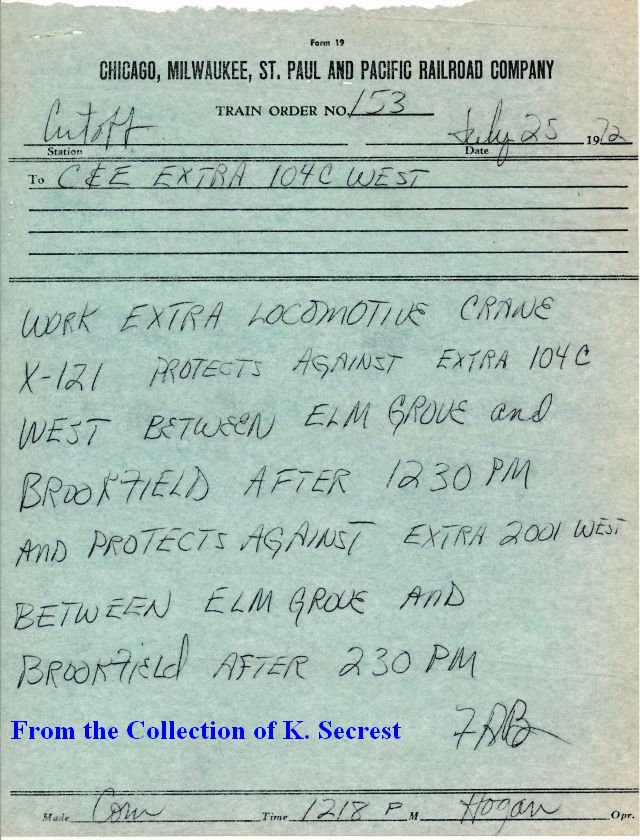 Form 19
CHICAGO, MILWAUKEE, ST. PAUL AND PACIFIC RAILROAD COMPANY
TRAIN ORDER NO. 153
Cutoff July 25 1972
Station Date
To C&E EXTRA 104C WEST
WORK EXTRA LOCOMOTIVE CRANE
X-121 PROTECTS AGAINST EXTRA 104C
WEST BETWEEN ELM GROVE and
BROOKFIELD AFTER 1230 PM
AND PROTECTS AGAINST EXTRA 2001 WEST
BETWEEN ELM GROVE AND
BROOKFIELD AFTER 230 PM
From the Collection of K. Secrest
Made Com Time 1218 P M Hogan Opr.